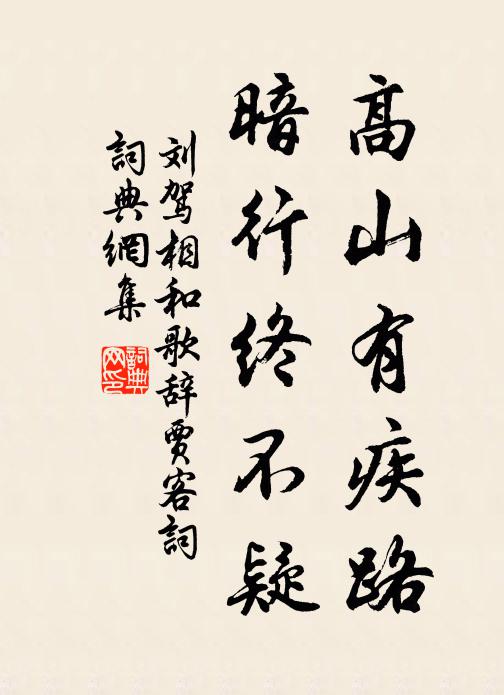 高山有疾路
暗行终不疑
刘驾相和歌辞賈客詞
詞典網集
詞典网印